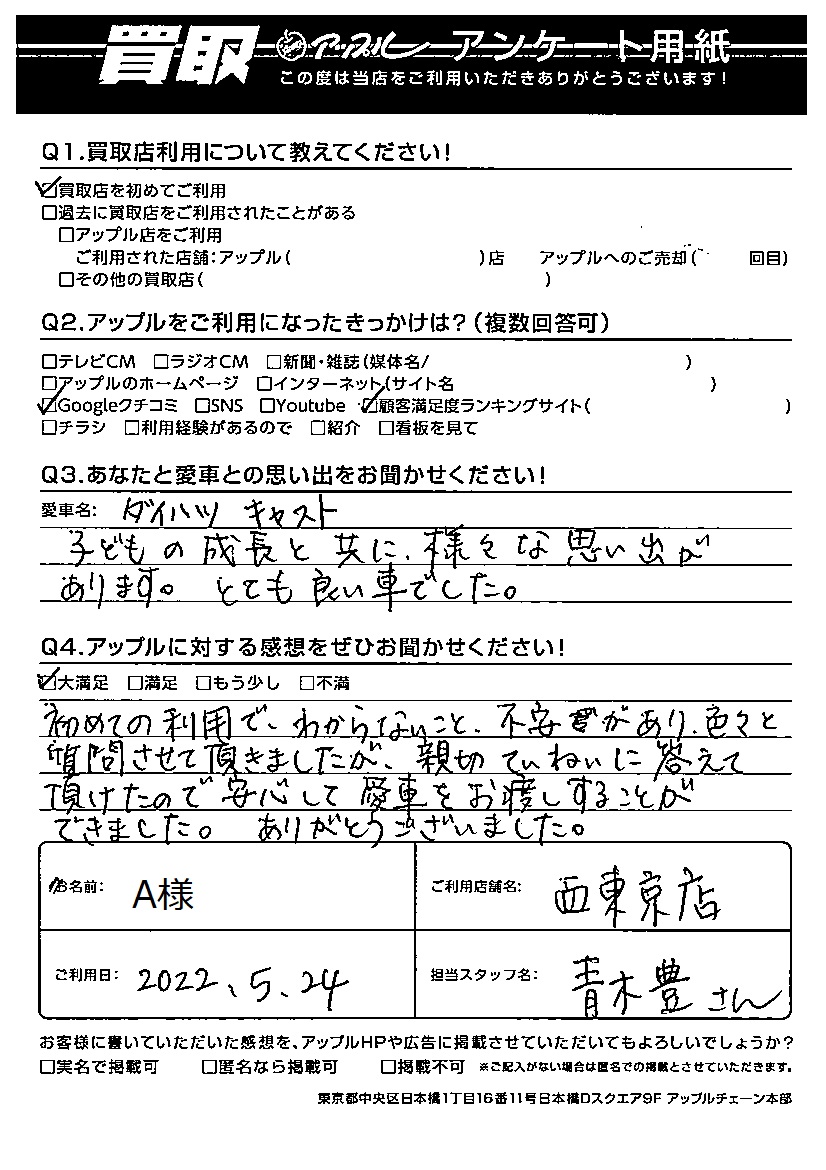 買取 アップル アンケート用紙
この度は当店をご利用いただきありがとうございます!
Q1.買取店利用について教えてください!
☑買取店を初めてご利用
□過去に買取店をご利用されたことがある
□アップル店をご利用
ご利用された店舗:アップル( )店 アップルへのご売却( 回目)
□その他の買取店( )
Q2.アップルをご利用になったきっかけは?(複数回答可)
□テレビCM □ラジオCM □新聞・雑誌(媒体名/ )
□アップルのホームページ □インターネット(サイト名 )
☑Googleクチコミ □SNS □Youtube ☑顧客満足度ランキングサイト( )
□チラシ □利用経験があるので □紹介 □看板を見て
Q3.あなたと愛車との思い出をお聞かせください!
愛車名: ダイハツ キャスト
子どもの成長と共に、様々な思い出が
あります。 とても良い車でした。
Q4.アップルに対する感想をぜひお聞かせください!
☑大満足 □満足 □もう少し □不満
初めての利用で、わからないこと、不安があり、色々と
質問させて頂きましたが、親切ていねいに答えて
頂けたので安心して愛車をお渡しすることが
できました。 ありがとうございました。
お名前: A様 ご利用店舗名: 西東京店
ご利用日: 2022、5、24 担当スタッフ名: 青木豊さん
お客様に書いていただいた感想を、アップルHPや広告に掲載させていただいてもよろしいでしょうか?
□実名で掲載可 □匿名なら掲載可 □掲載不可 ※ご記入がない場合は匿名での掲載とさせていただきます。
東京都中央区日本橋1丁目16番11号日本橋Dスクエア9F アップルチェーン本部